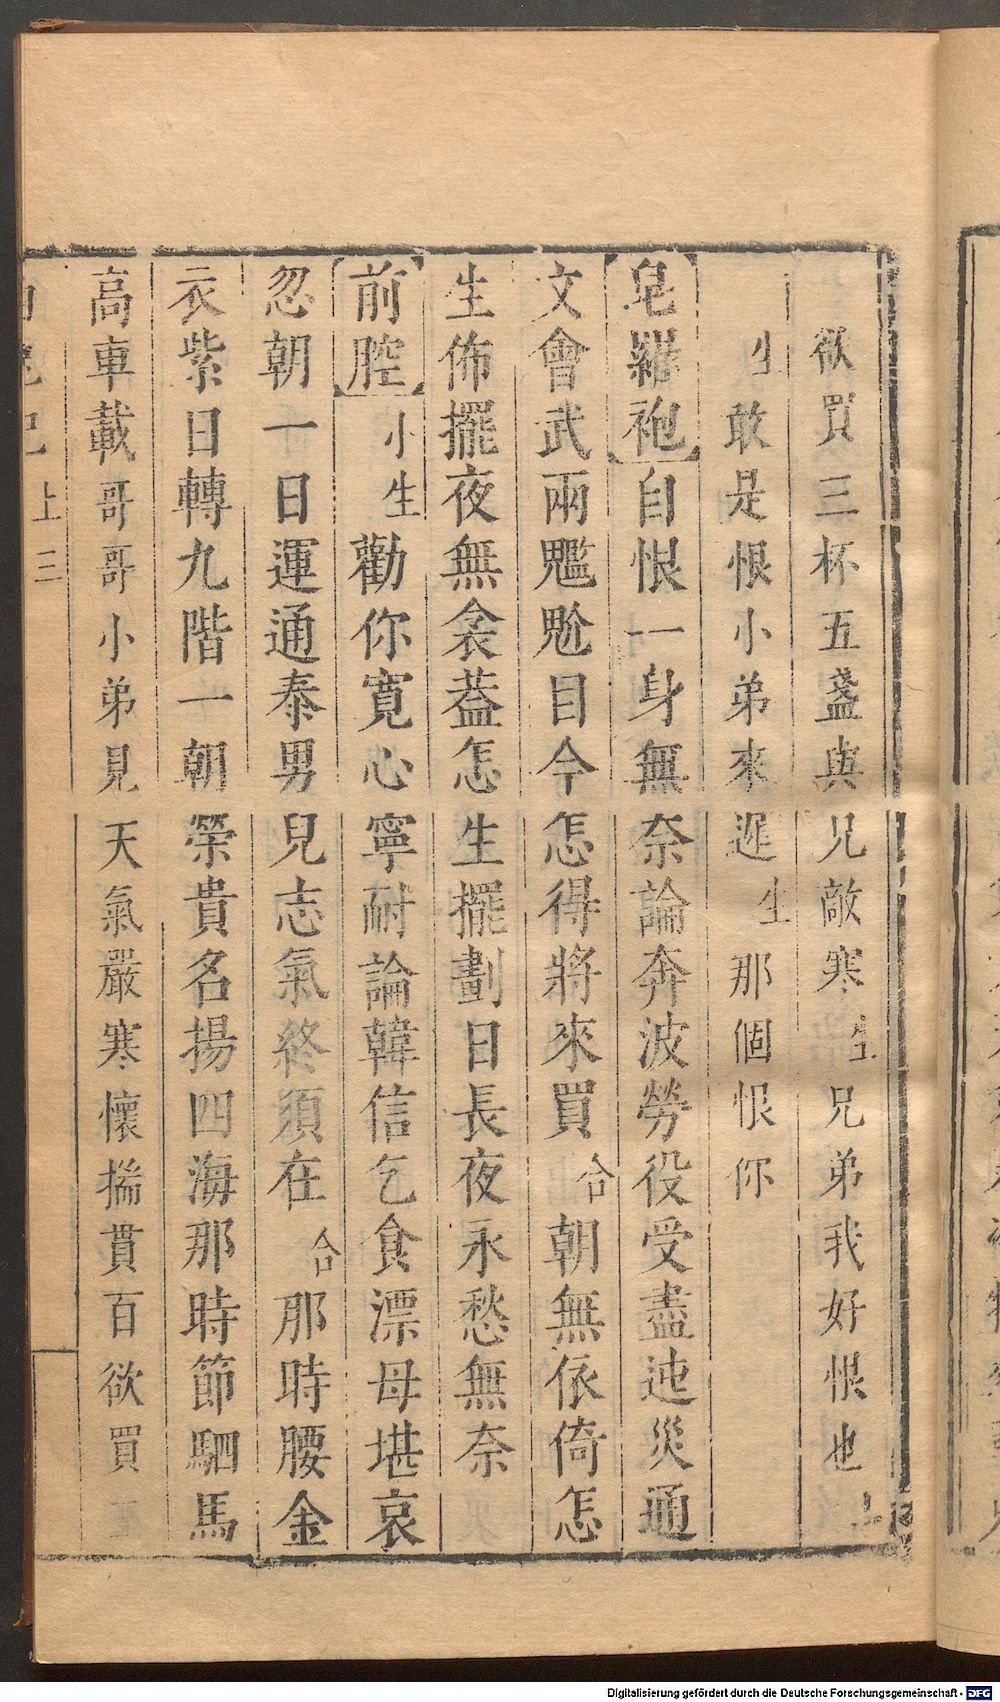 欲買三杯五盞與兄敵寒生兄弟我好恨也小
生敢是恨小弟來遲生那個恨你
皂羅袍自恨一身無奈論奔波勞役受盡迍災通
文會武兩尷尬目今怎得將來買合朝無依倚怎
生佈擺夜無衾葢怎生擺劃日長夜永愁無奈
前腔小生勸你寛心寧耐論韓信乞食漂母堪哀
忽朝一日運通泰男兒志氣終須在合那時腰金
衣紫日轉九階一朝榮貴名揚四海那時節駟馬
高車載哥哥小弟見天氣嚴寒懷揣貫百欲買三
白兔記上三
Digitalisierung gefördert durch die Deutsche Forschungsgemeinschaft - DFG